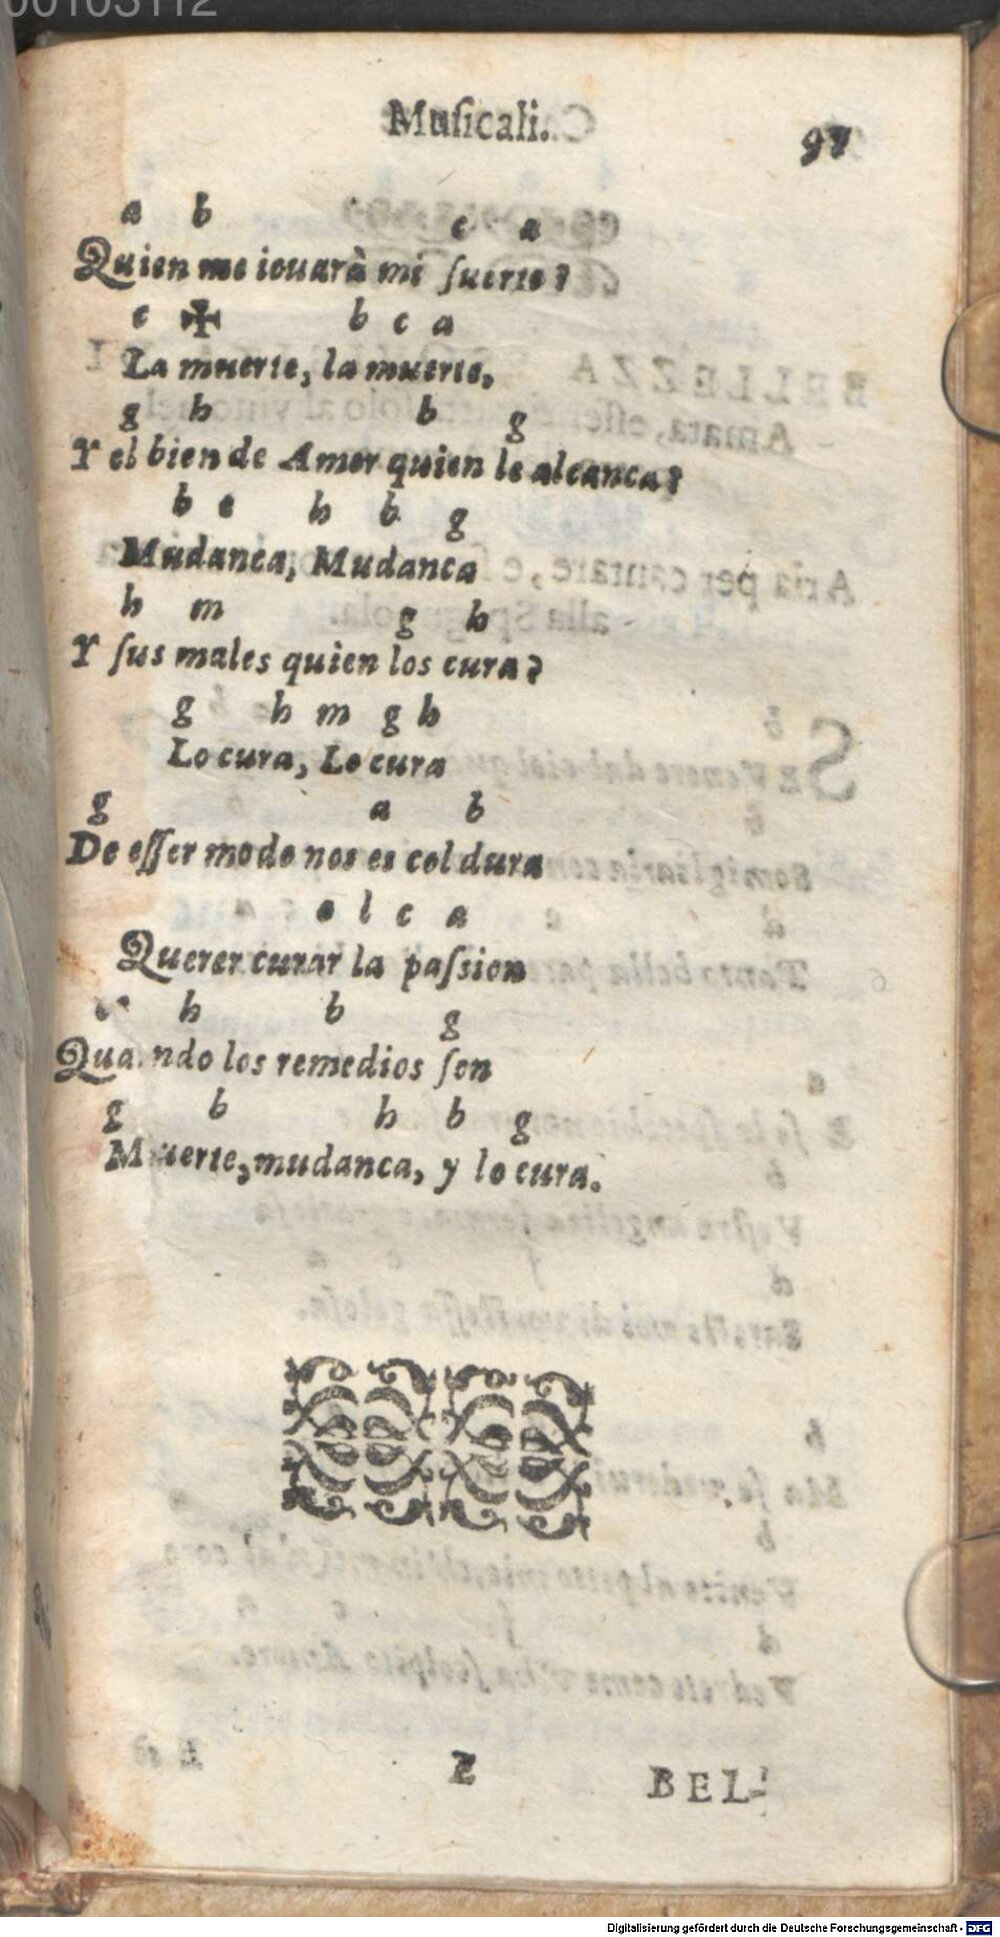 00103112
Muſicali. 97
a b c a
Quien me iouarà mi ſuerte?
c ✠ b c a
La muerte, la muerte,
g h b g
Y el bien de Amor quien le alcanca?
b e h b g
Mudanca, Mudanca
h m g h
Y ſus males quien los cura?
g h m g h
Lo cura, Lo cura
g a b
De eſſer modo nos es col dura
e l c a
Querer curar la paſsion
h b g
Quando los remedios ſon
g b h b g
Muerte, mudanca, y lo cura.
Z BEL-
Digitalisierung gefördert durch die Deutsche Forschungsgemeinschaft - DFG